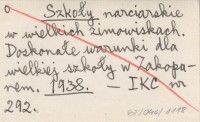 o
Szkoły narciarskie
w wielkich zimowiskach.
Doskonałe warunki dla
wielkiej szkoły w Zakopa-
nem. 1938. — IKC nr
292.